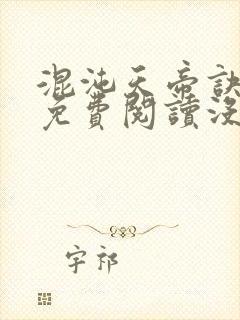 混沌天帝訣
免費閱讀沒
宇祁